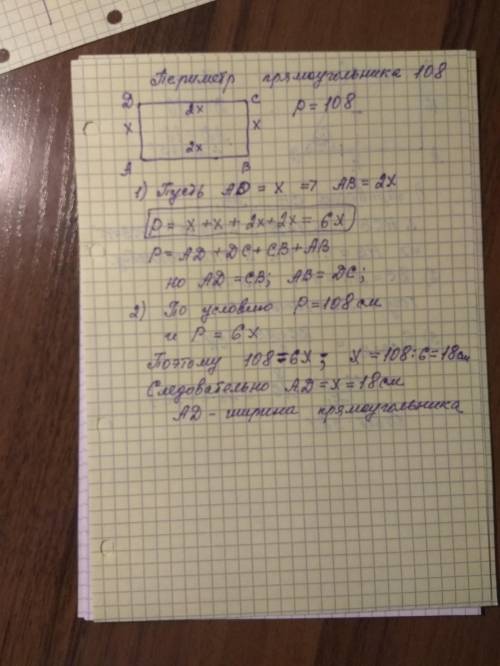 Периметр прямоугольника 108
D 2x C P = 108
x x
2x
A B
1) Пусть AD = x => AB = 2x
P = x + x + 2x + 2x = 6x
P = AD + DC + CB + AB
но AD = CB; AB = DC;
2) По условию P = 108 см
и P = 6x
Поэтому 108 = 6x; x = 108 : 6 = 18 см
Следовательно AD = x = 18 см
AD - ширина прямоугольника